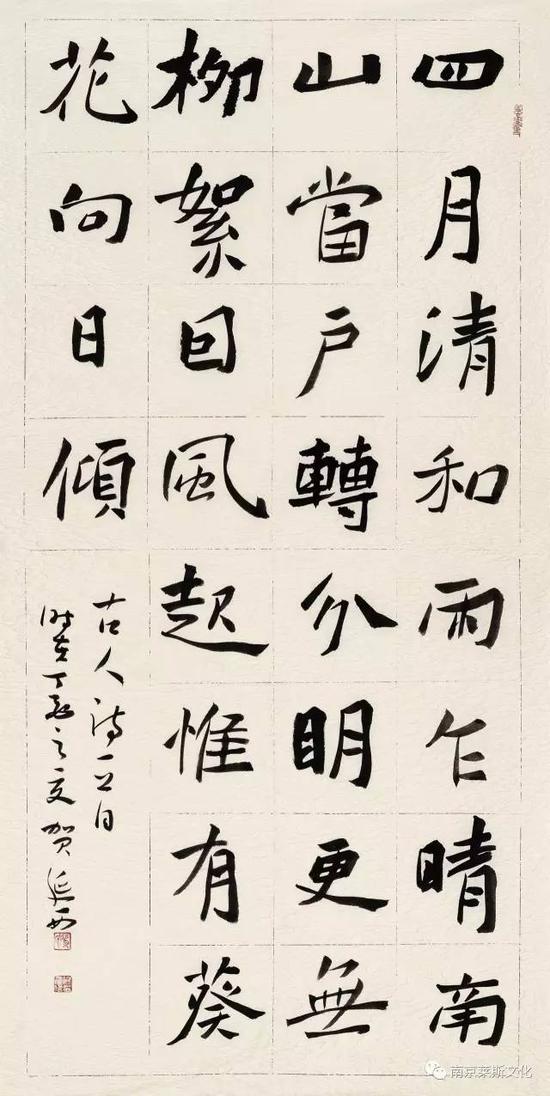 四月清和雨乍晴南
山當户轉分明更無
柳絮因風起惟有葵
花向日傾
古人詩一首
時在丁亥之夏賀
南京莱斯文化